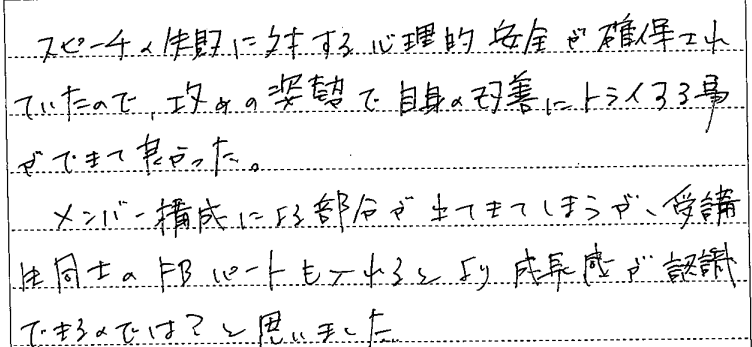 スピーチの失敗に対する心理的安全が確保され
ていたので、攻めの姿勢で自身の改善にトライする事
ができて良かった。
メンバー構成による部分が出てきてしまうが、受講
生同士のFBパートも入れるとより成長感が認識
できるのでは？と思いました